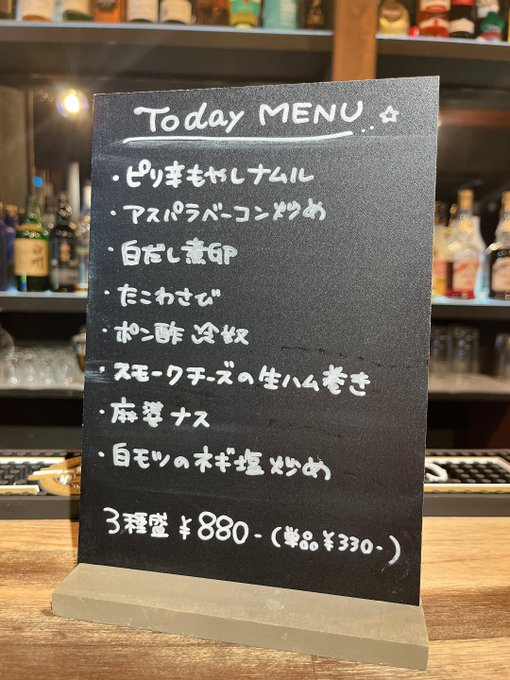 Today MENU ..☆
・ピリ辛もやしナムル
・アスパラベーコン炒め
・白だし煮卵
・たこわさび
・ポン酢冷奴
・スモークチーズの生ハム巻き
・麻婆ナス
・白モツのネギ塩炒め
3種盛 ¥880-(単品¥330-)